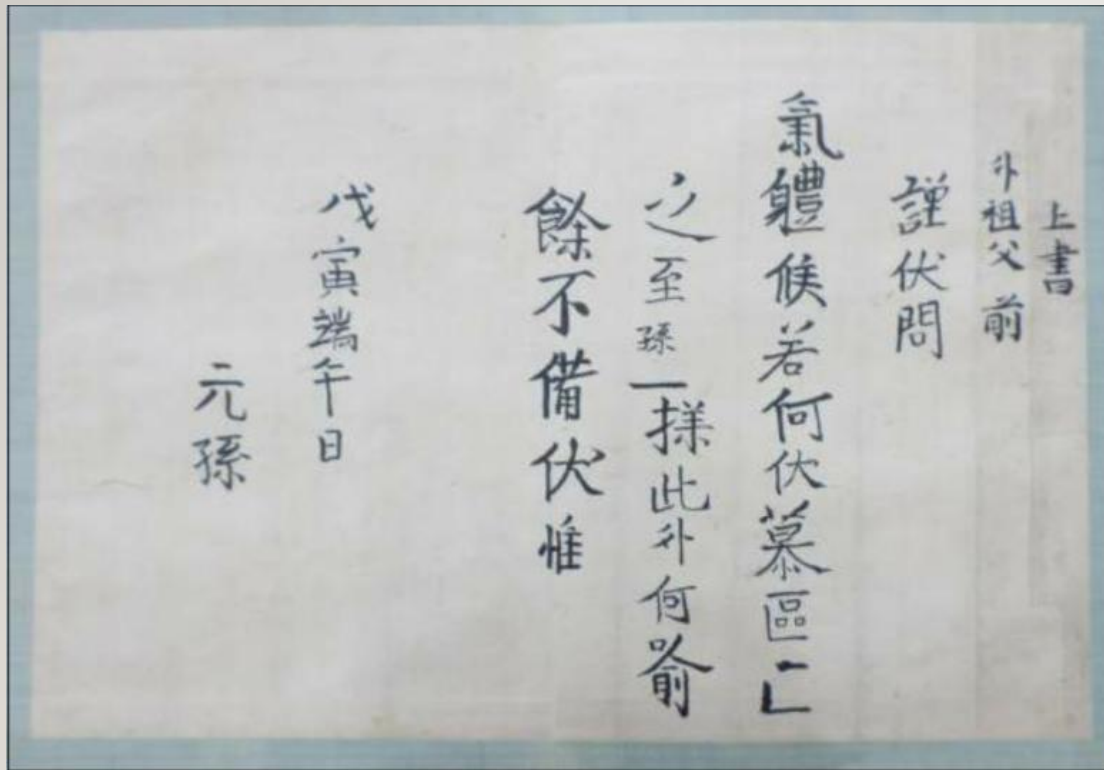 上書
外祖父 前
謹伏問
氣體候若何伏慕區〻
之至孫一㨾此外何喩
餘不備伏惟
戊寅端午日
元孫